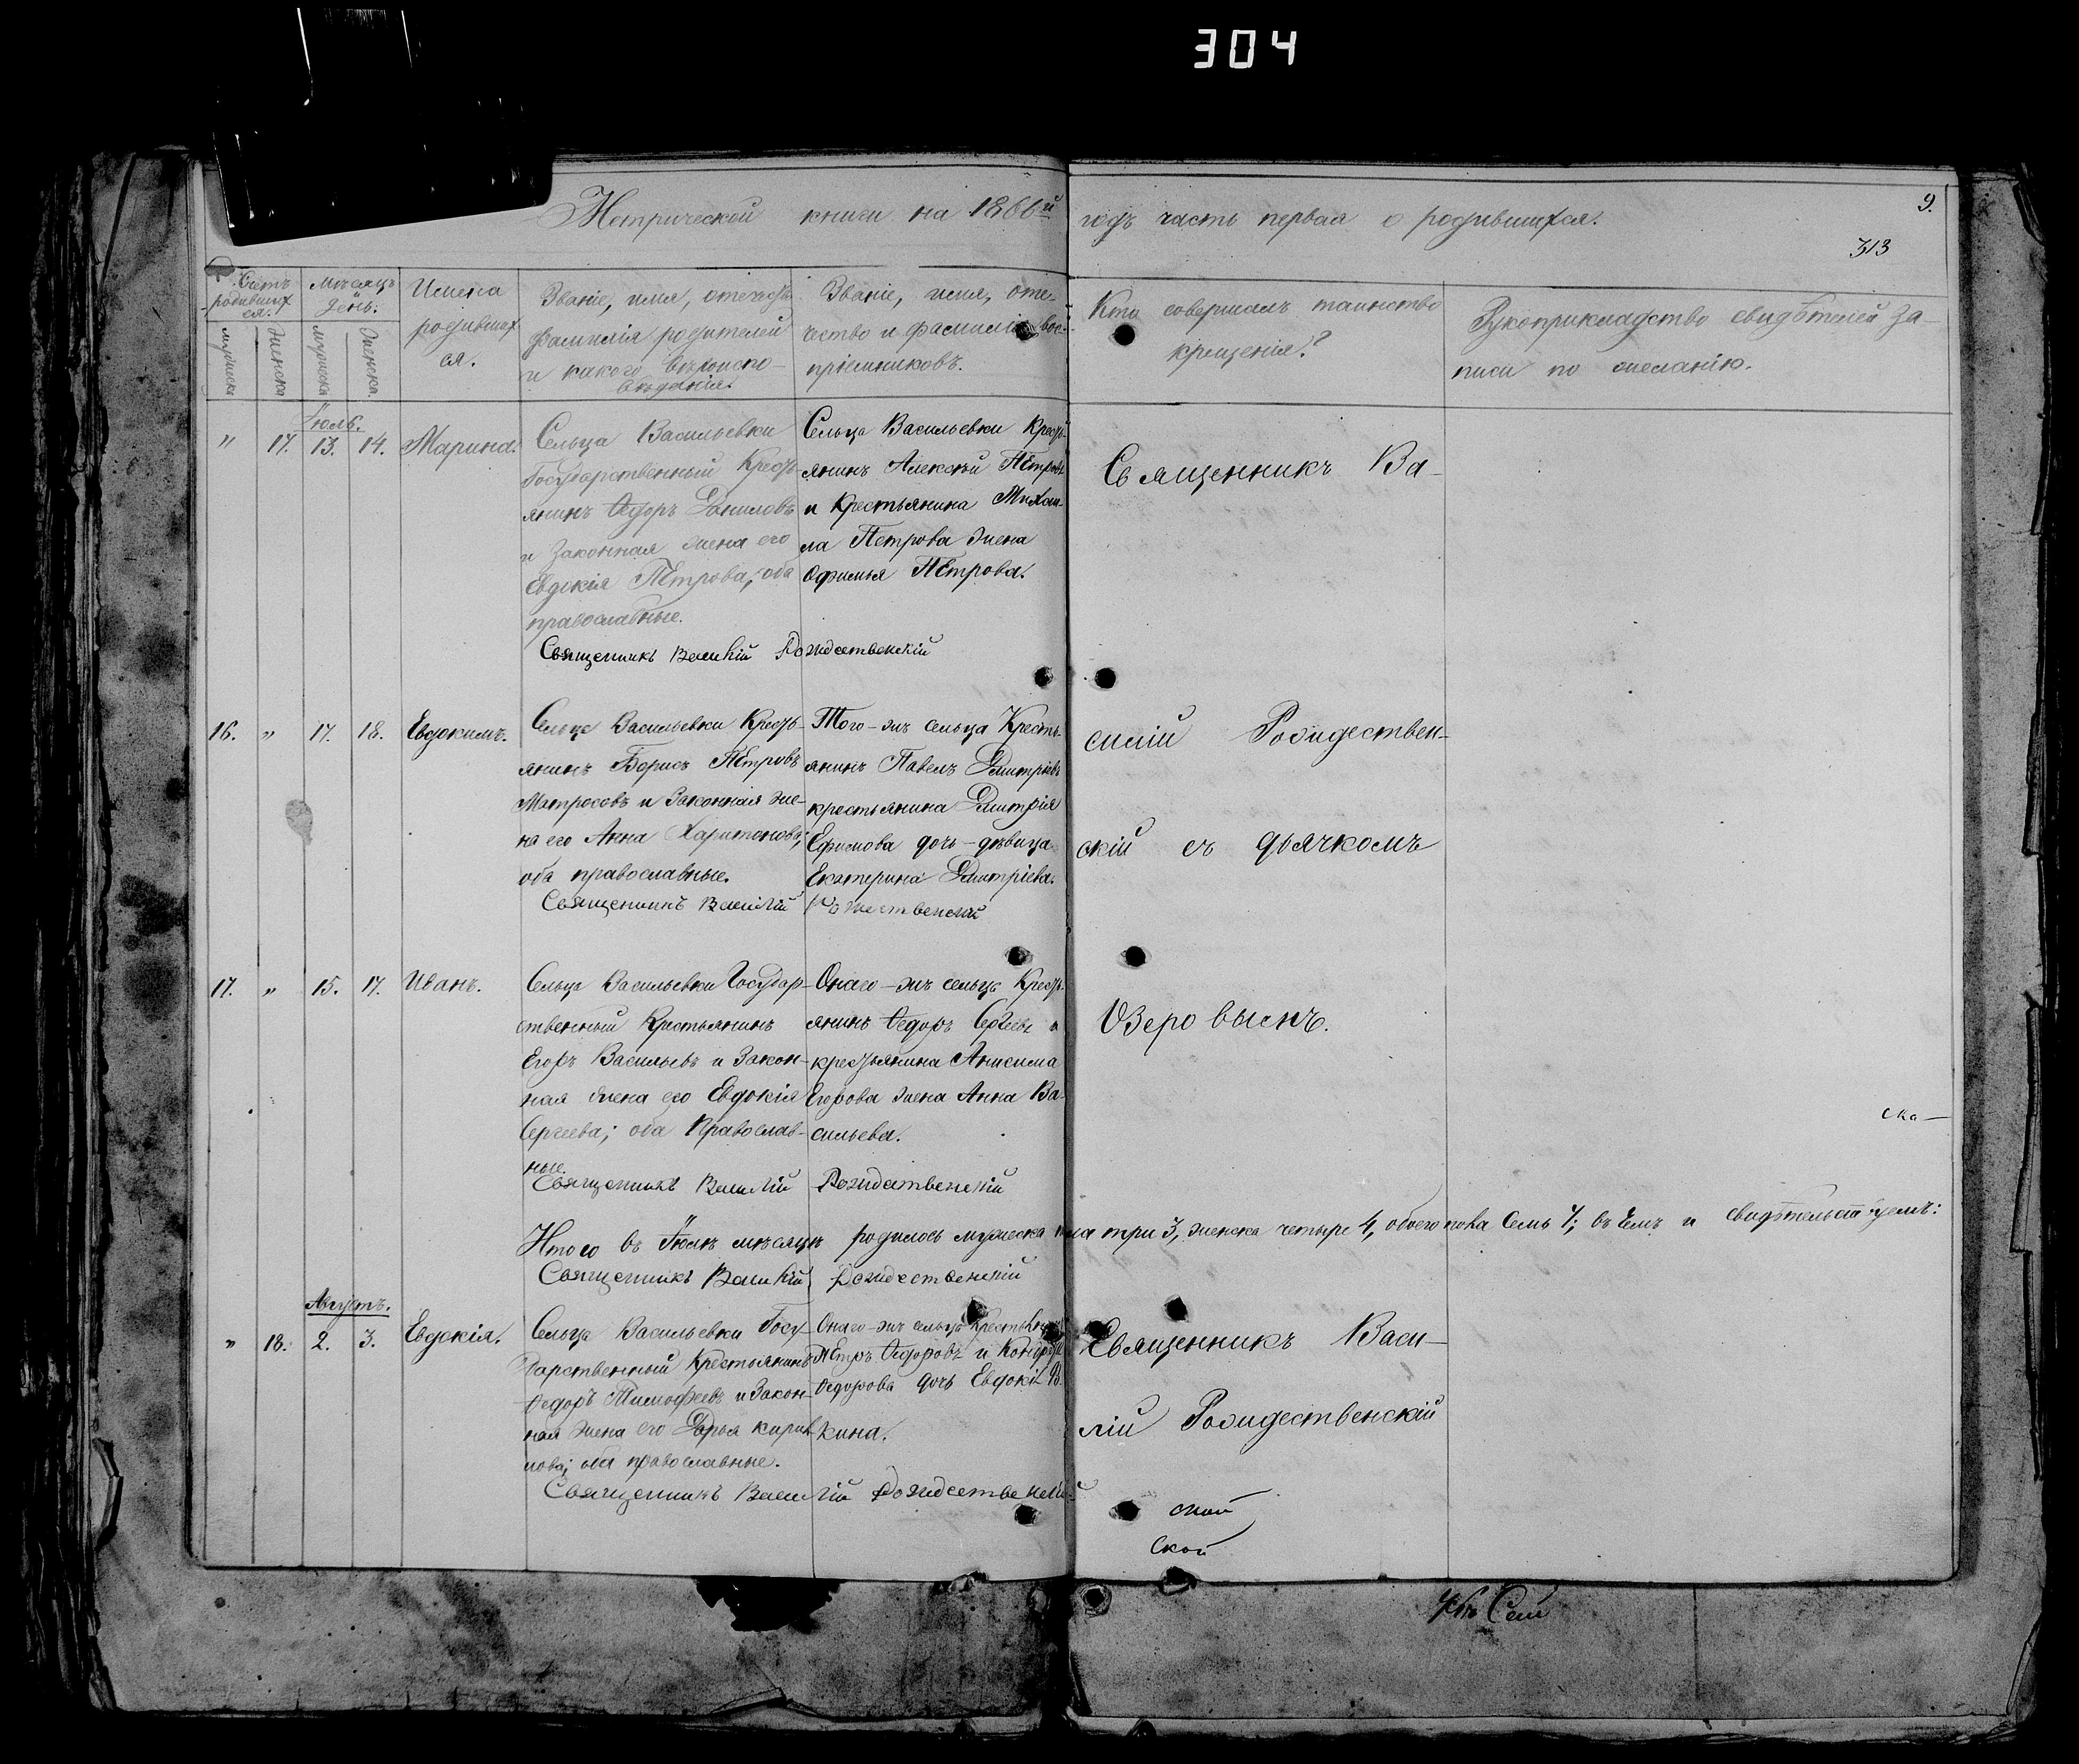 304
Метрической книги на 1866й годъ часть первая о родившихся.
9.
313
Счетъ родившихся.
мужеска
женска
Мѣсяцъ день.
мужеска
женска
Имена
родивших
ся.
Званіе, имя, отечество
фамилія родителей
и какого вѣроиспо-
вѣданія.
Званіе, имя, оте-
чество и фамилія вос-
пріемниковъ.
Кто совершалъ таинство
крещенія?
Рукоприкладство свидѣтелей за-
писи по желанію.
Іюль.
" 17. 13. 14. Марина.
Сельца Васильевки
Государственный Кресть-
янинъ Ѳедоръ Даниловъ
и законная жена его
Евдокія Петрова, оба
православные.
Сельца Васильевки Кресть-
янинъ Алексѣй Петровъ
и Крестьянина Михаи-
ла Петрова жена
Офимья Петрова.
Священникъ Василій Рождественскій
16. " 17. 18. Евдокимъ.
Сельца Васильевки Кресть-
янинъ Борисъ Петровъ
Матросовъ и Законная же-
на его Анна Харитонова;
оба православные.
Того-жъ сельца Кресть-
янинъ Павелъ Дмитріевъ
крестьянина Дмитрія
Ефимова дочь-дѣвица
Екатерина Дмитріева.
Священникъ Василій Рождественскій
17. " 15. 17. Иванъ.
Сельца Васильевки Государ-
ственный Крестьянинъ
Егоръ Васильевъ и Закон-
ная жена его Евдокія
Сергеева; оба Православ-
ные.
Онаго-жъ сельца Кресть-
янинъ Ѳедоръ Сергеевъ и
крестьянина Анисима
Егорова жена Анна Ва-
сильева.
Священникъ Василій Рождественскій
Священникъ Ва-
силій Рождествен-
скій съ дьячкомъ
Озеровымъ.
ска-
Итого въ Іюлѣ мѣсяцѣ родилось мужеска пола три 3, женска четыре 4, обоего пола Семь 7; въ чемъ и свидѣтельствуемъ:
Священникъ Василій Рождественскій
Августъ.
" 18. 2. 3. Евдокія.
Сельца Васильевки Госу-
дарственный Крестьянинъ
Ѳедоръ Тимофеевъ и Закон-
ная жена его Дарья Кирил-
лова; оба православные.
Онаго-жъ сельца Крестьянинъ
Петръ Ѳедоровъ и
Ѳедорова дочь Евдокія
кина.
Священникъ Василій Рождественскій
Священникъ Васи-
лій Рождественскій
ской
ской